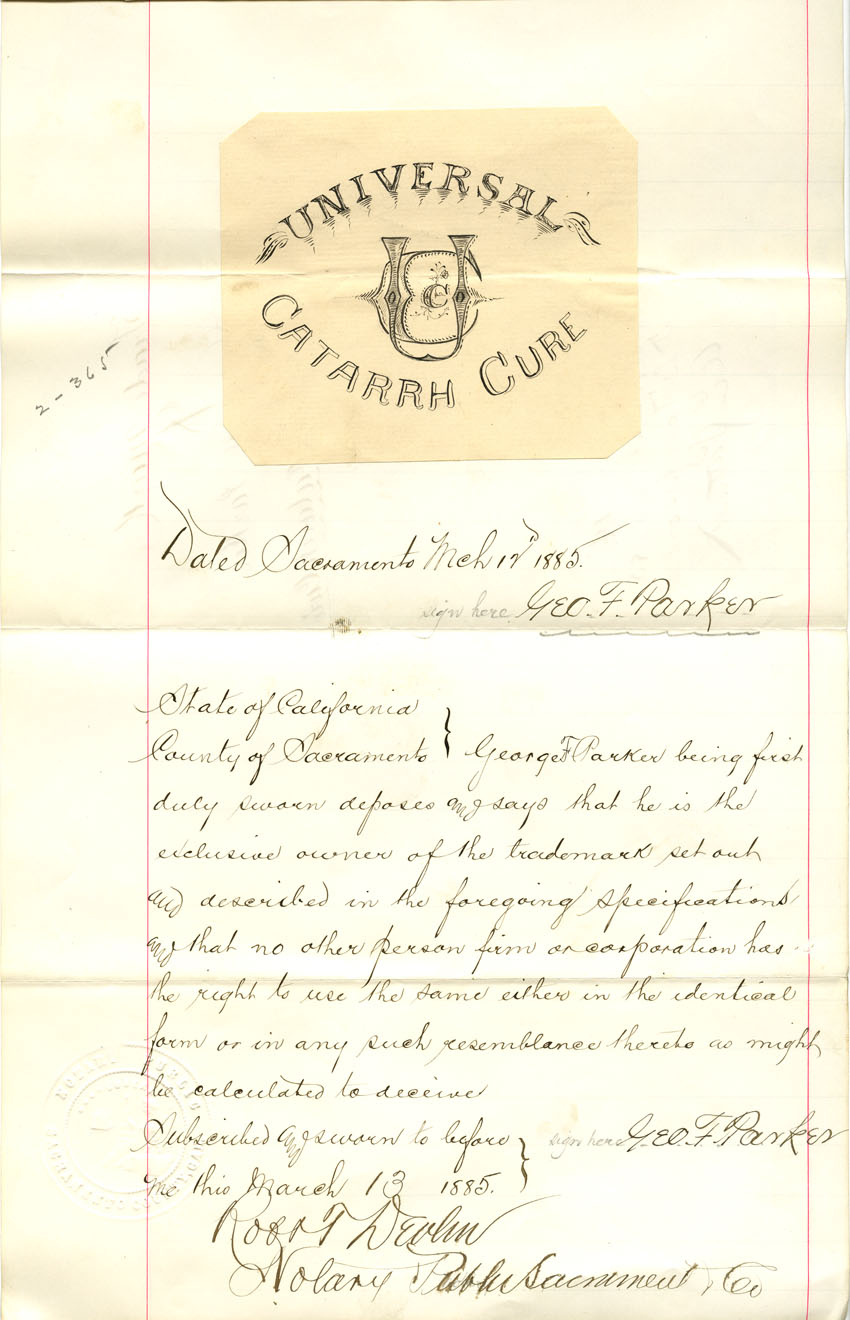 UNIVERSAL
UCC
CATARRH CURE
2-365
Dated Sacramento Mch 12 1885.
sign here Geo. F. Parker
State of California
County of Sacramento } George F Parker being first
duly sworn deposes and says that he is the
exclusive owner of the trademark set out
and described in the foregoing specifications
and that no other person firm or corporation has
the right to use the same either in the identical
form or in any such resemblance thereto as might
be calculated to deceive
Subscribed and sworn to before } sign here Geo. F. Parker
me this March 13 1885.
Robt T Devlin
Notary Public Sacrament Co